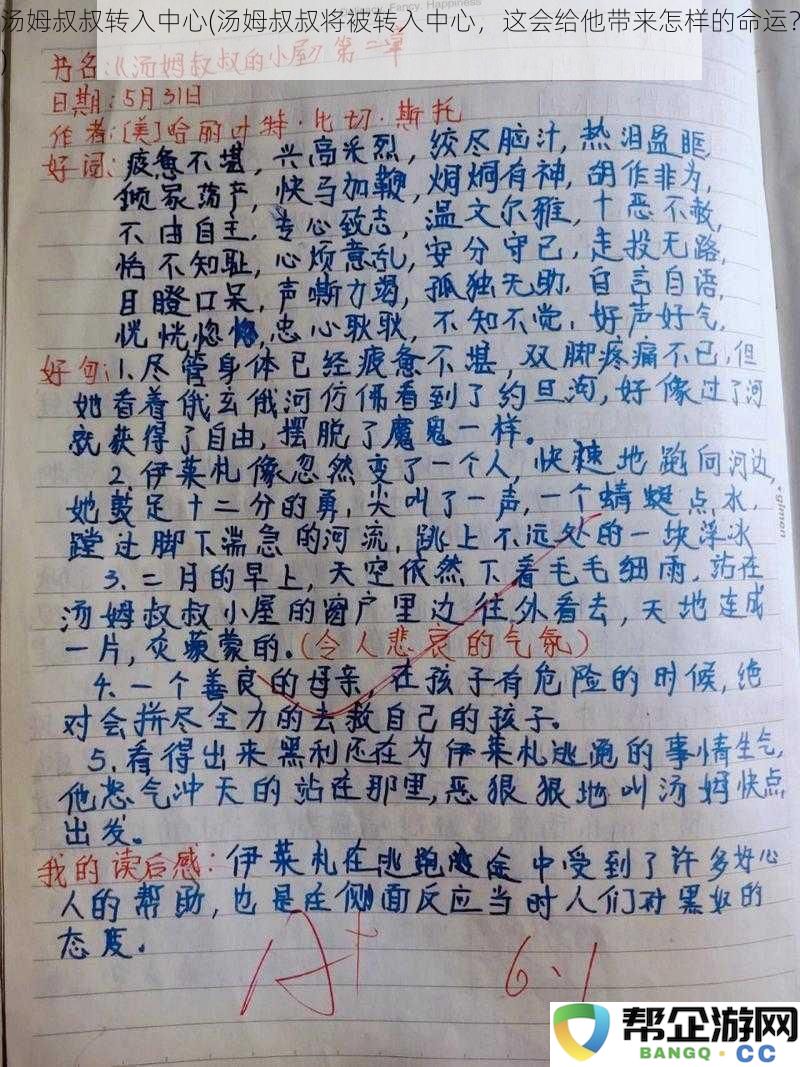 汤姆叔叔转入中心(汤姆叔叔将被转入中心，这会给他带来怎样的命运?
)
Fancy, Happiness
书名:《汤姆叔叔的小屋》第二章
日期:5月31日
作者:[美]哈丽叶特·比切·斯托
好词:疲惫不堪，兴高采烈，绞尽脑汁，热泪盈眶，
倾家荡产，快马加鞭，炯炯有神，胡作非为，
不由自主，专心致志，温文尔雅，十恶不赦，
恬不知耻，心烦意乱，安分守己，走投无路，
目瞪口呆，声嘶力竭，孤独无助，自言自语，
恍恍惚惚，忠心耿耿，不知不觉，好声好气，
好句:1.尽管身体已经疲惫不堪，双脚疼痛不已，但
她看着俄亥俄河仿佛看到了约旦河，好像过了河
就获得了自由，摆脱了魔鬼一样。
2.伊莱札像忽然变了一个人，快速地跑向河边，
她鼓足十二分的勇，尖叫了一声，一个蜻蜓点水，
蹚过脚下湍急的河流，跳上不远处的一块浮冰
3.二月的早上，天空依然下着毛毛细雨，站在
汤姆叔叔小屋的窗户里边往外看去，天地连成
一片，灰蒙蒙的。(令人悲哀的气氛)
4.一个善良的母亲，在孩子有危险的时候，绝
对会拼尽全力的去救自己的孩子。
5.看得出来黑利还在为伊莱札逃跑的事情生气，
他怒气冲天的站在那里，恶狠狠地叫汤姆快点
出发。
我的读后感:伊莱札在逃跑途中受到了许多好心
人的帮助，也是在侧面反应当时人们对黑奴的
态度。
A+ 6.1
glmen
帮企游网
BANGQ CC